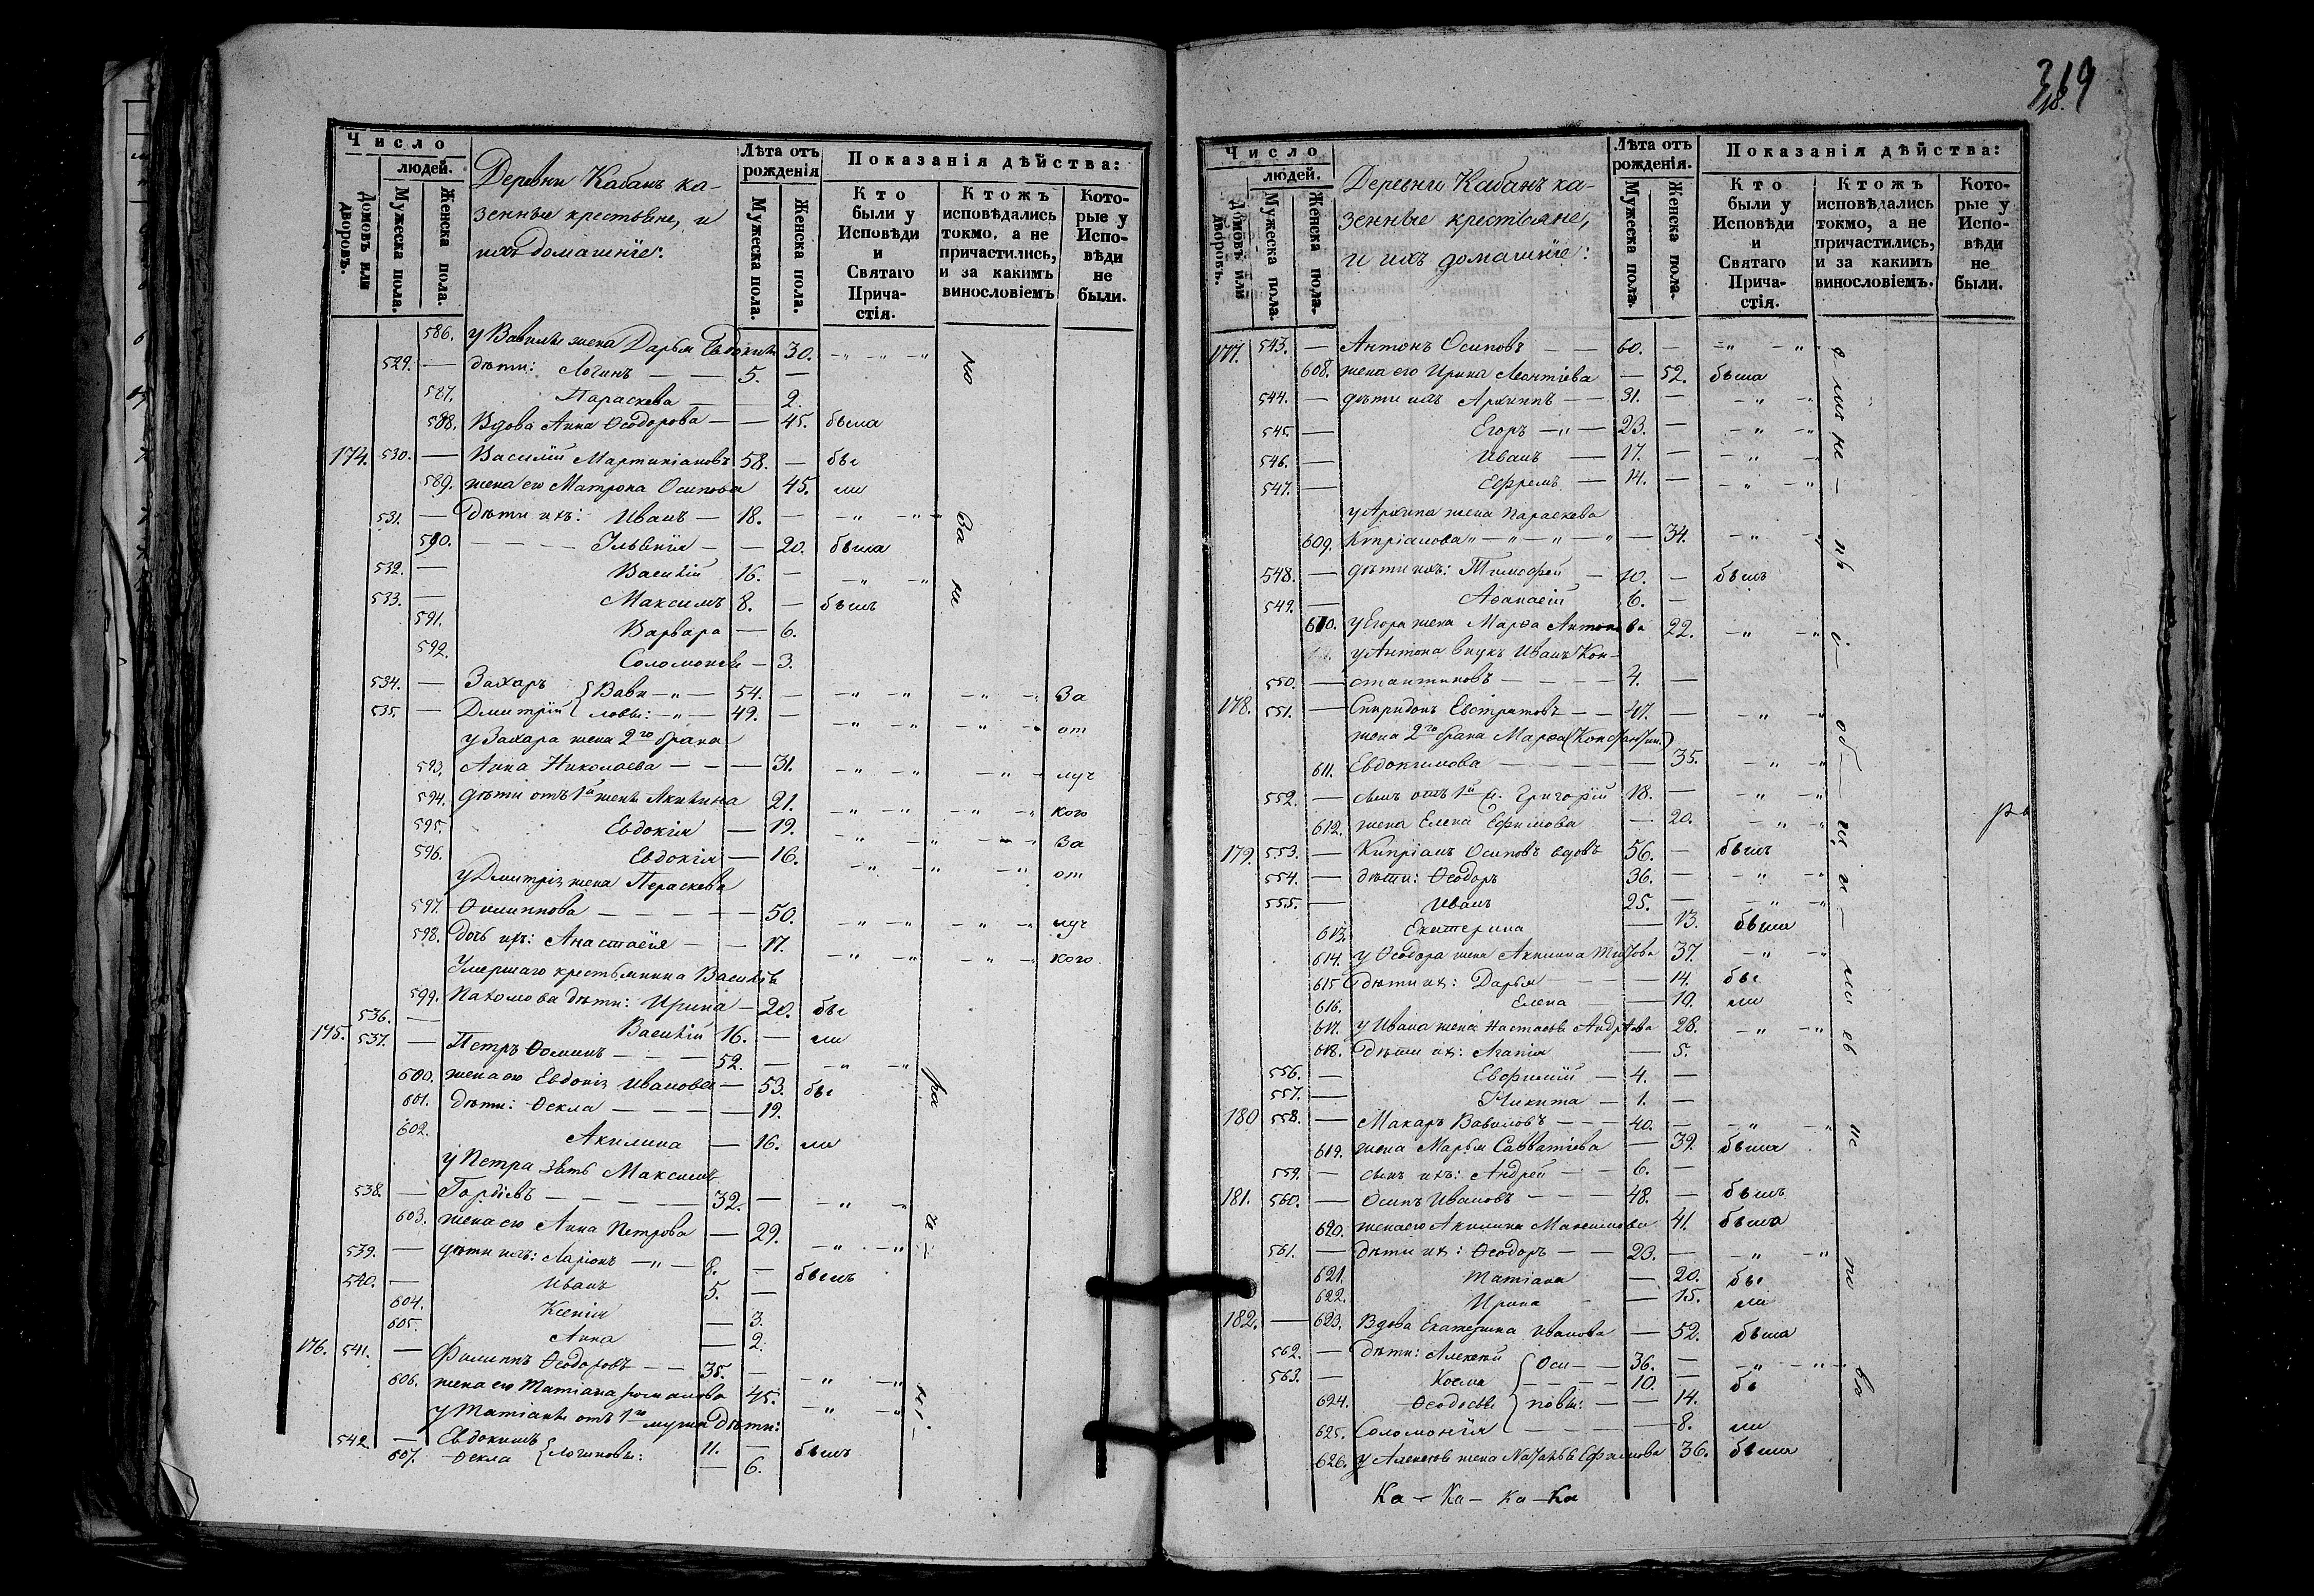 Число
людей.
Домовъ или дворовъ.
Мужеска пола.
Женска пола.
Деревни Кабанъ ка-
зенные крестьяне, и
ихъ домашніе:
Лѣта отъ рожденія
Мужеска пола.
Женска пола.
Показанія дѣйства:
Кто были у Исповѣди и Святаго Прича-стія.
Ктожъ исповѣдались токмо, а не причастились, и за какимъ винословіемъ
Кото-рые у Испо-вѣди не были.
586. у Вавилы жена Дарья Евдоким 30. -"- -"
529. — дѣти: Логинъ — — 5. —
587. Параскева — — 2.
588. Вдова Анна Ѳеодорова — — 45. была
174. 530. — Василій Мартиніановъ 58. — бы
589. жена его Матрона Осипова 45. ли
531. — Дѣти ихъ: Иванъ — 18. — -"- -"-
590. — — — Ульянія — — 20. была
532. — Василій 16. — -"- -"
533. — Максимъ 8. — былъ
591. Варвара — 6.
592. Соломонія — 3.
534. — Захаръ { Вави -"- 54. — -"- -" -"- за
535. — Дмитрій { ловы: -"- 49. — -"- -" -"- от
у Захара жена 2го брака
593. Анна Николаева — — — 31. -"- -" -"- луч
594. дѣти отъ 1й жены Акилина 21. -"- -" -"- кого
595. Евдокія — 19. -"- -" -"- за
596. Евдокія — 16. -"- -" -"- от
у Дмитрія жена Параскева
597. Филиппова — — — — 50. -"- -" -"- луч
598. дочь ихъ: Анастасія — — 17. -"- -" -"- кого
Умершаго крестьянина Василія
599. Пахомова дѣти: Ирина — 20. бы
536. — Василій 16. — ли
175. 537. — Петръ Ѳоминъ — — — 52. — -"- -"
600. жена его Евдокія Иванова — 53. бы
601. дѣти: Ѳекла — — — — 19.
602. Акилина — 16. ли
у Петра зять Максимъ
538. — Гордіевъ — — — — 32. — -"- -"
603. жена его Анна Петрова — 29. -"- -"
539. — дѣти ихъ: Ларіонъ -"- 8. — былъ
540. — Иванъ 5. —
604. Ксенія — 3.
605. Анна — 2.
176. 541. — Филиппъ Ѳеодоровъ — — 35. — -"- -"
606. жена его Татіана Романова 45. -"- -"
у Татіаны отъ 1го мужа дѣти:
542. — Евдокимъ 11. — былъ
607. Ѳекла { Логиновы: — 6.
Число
людей.
Домовъ или дворовъ.
Мужеска пола.
Женска пола.
Деревни Кабанъ ка-
зенные крестьяне,
и ихъ домашніе:
Лѣта отъ рожденія.
Мужеска пола.
Женска пола.
Показанія дѣйства:
Кто были у Исповѣди и Святаго Прича-стія.
Ктожъ исповѣдались токмо, а не причастились, и за какимъ винословіемъ.
Кото-рые у Испо-вѣди не были.
177. 543. — Антонъ Осиповъ — — 60. — -"- -"
608. жена его Ирина Леонтіева — 52. была
544. — дѣти ихъ Архиппъ — — 31. — -"- -"
545. — Егоръ -"- 23. — -"- -"
546. — Иванъ — 17. — -"- -"
547. — Ефремъ — 14. — -"- -"
у Архипа жена Параскева
609. Кипріанова -"-"-"- — 34. -"- -"
548. — дѣти ихъ: Тимофей — 10. — былъ
549. — Аѳанасій 6. —
610. у Егора жена Марѳа Антонова 22. -"- -"
у Антона внукъ Иванъ Кон-
550. — стантиновъ — — — — 4. —
178. 551. — Спиридонъ Евстратовъ — — 47. — -"- -"
жена 2го брака Марѳа (Константин.)
611. Евдокимова — — — — — 35. -"- -"
552. — сынъ отъ 1й ж. Григорій 18. — -"- -"
612. жена Елена Ефимова — 20. -"- -"
179. 553. — Кипріанъ Осиповъ вдовъ 56. — былъ
554. — дѣти: Ѳеодоръ 36. — -"- -"
555. — Иванъ 25. — -"- -"
613. Екатерина — 13. была
614. у Ѳеодора жена Акилина 37. -"- -"
615 Дѣти их: Дарья — — — 14. бы
616. Елена — — 10. ли
617. у Ивана жена Настасья Андреева 28. -"- -"
618. Дѣти их: Агапія — 5.
556. — Евфимій — 4. —
557. — Никита — 1. —
180 558. — Макаръ Вавиловъ — — — 40. — -"- -"
619. жена Марья Савватіева — 39. была
559. — сынъ ихъ: Андрей — — 6. —
181. 560. — Осипъ Ивановъ — — — 48. — былъ
620. жена его Акилина Максимова 41. была
561. — Дѣти их: Ѳеодоръ — — 23. — -"- -"
621. Татіана — 20. бы
622. Ирина — — 15. ли
182. — 623. Вдова Екатерина Иванова — 52. была
562. — Дѣти: Алексѣй { Оси — — 36. — -"- -"-
563. — Косма { — — — 10. — бы
624. Ѳеодосья } повы: — — 14.
625. Соломонія — — — — 8. ли
626. у Алексѣя жена Наталья Ефимова 36. была
Ка — Ка — Ка — Ка